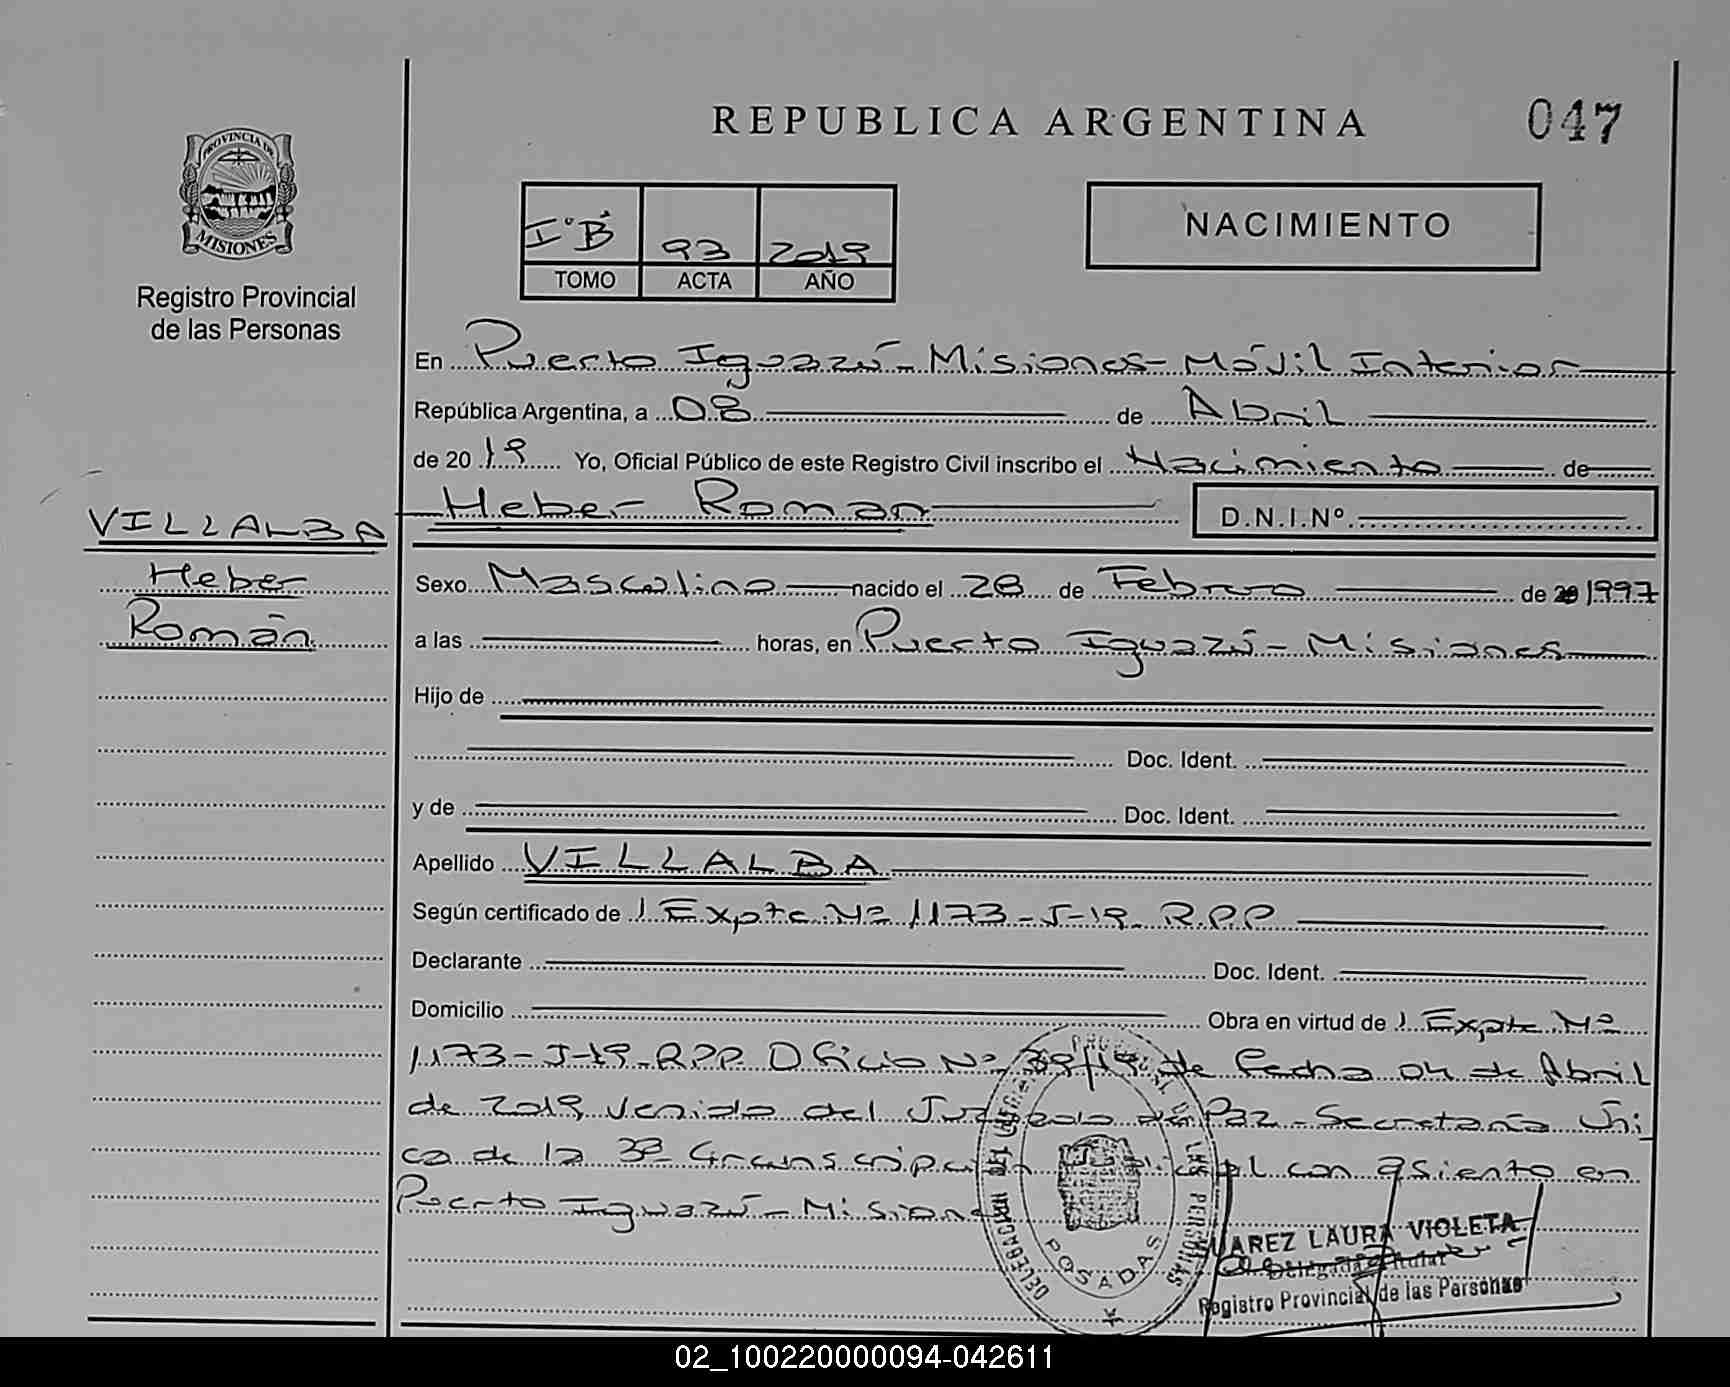 REPUBLICA ARGENTINA
047
PROVINCIA DE
MISIONES
Registro Provincial
de las Personas
I° B 93 2019
TOMO ACTA AÑO
NACIMIENTO
En Puerto Iguazú - Misiones - Móvil Interior
República Argentina, a 08 de Abril
de 2019 Yo, Oficial Público de este Registro Civil inscribo el Nacimiento de
Heber Roman D.N.I.Nº.
VILLALBA
Heber
Román
Sexo Masculino nacido el 28 de Febrero de 20 1997
a las horas, en Puerto Iguazú - Misiones
Hijo de
Doc. Ident.
y de Doc. Ident.
Apellido VILLALBA
Según certificado de Expte Nº 1173-J-19-R.P.P
Declarante Doc. Ident.
Domicilio Obra en virtud de Expte Nº
1173-J-19-RPP Oficio Nº de fecha 04 de Abril
de 2019 venido del Juzgado de Paz - Secretaría Úni
ca de la 3ª Circunscripción Judicial con asiento en
Puerto Iguazú - Misiones
POSADAS
LAS PERSONAS
JUAREZ LAURA VIOLETA
Delegada Titular
Registro Provincial de las Personas
02_100220000094-042611